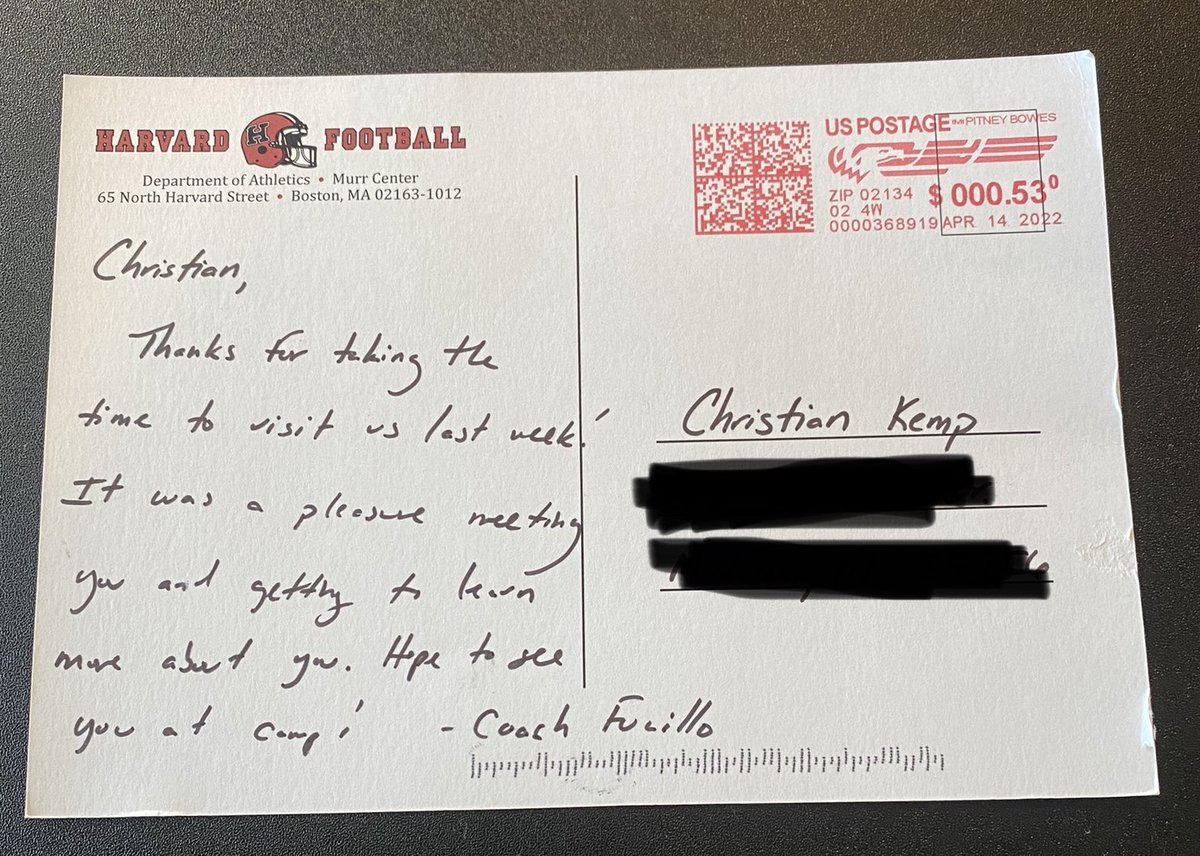 HARVARD FOOTBALL
Department of Athletics • Murr Center
65 North Harvard Street • Boston, MA 02163-1012
US POSTAGE PITNEY BOWES
ZIP 02134 $ 000.53⁰
02 4W
0000368919 APR. 14 2022
Christian,
Thanks for taking the
time to visit us last week!
It was a pleasure meeting
you and getting to learn
more about you. Hope to see
you at camp! - Coach Fucillo
Christian Kemp